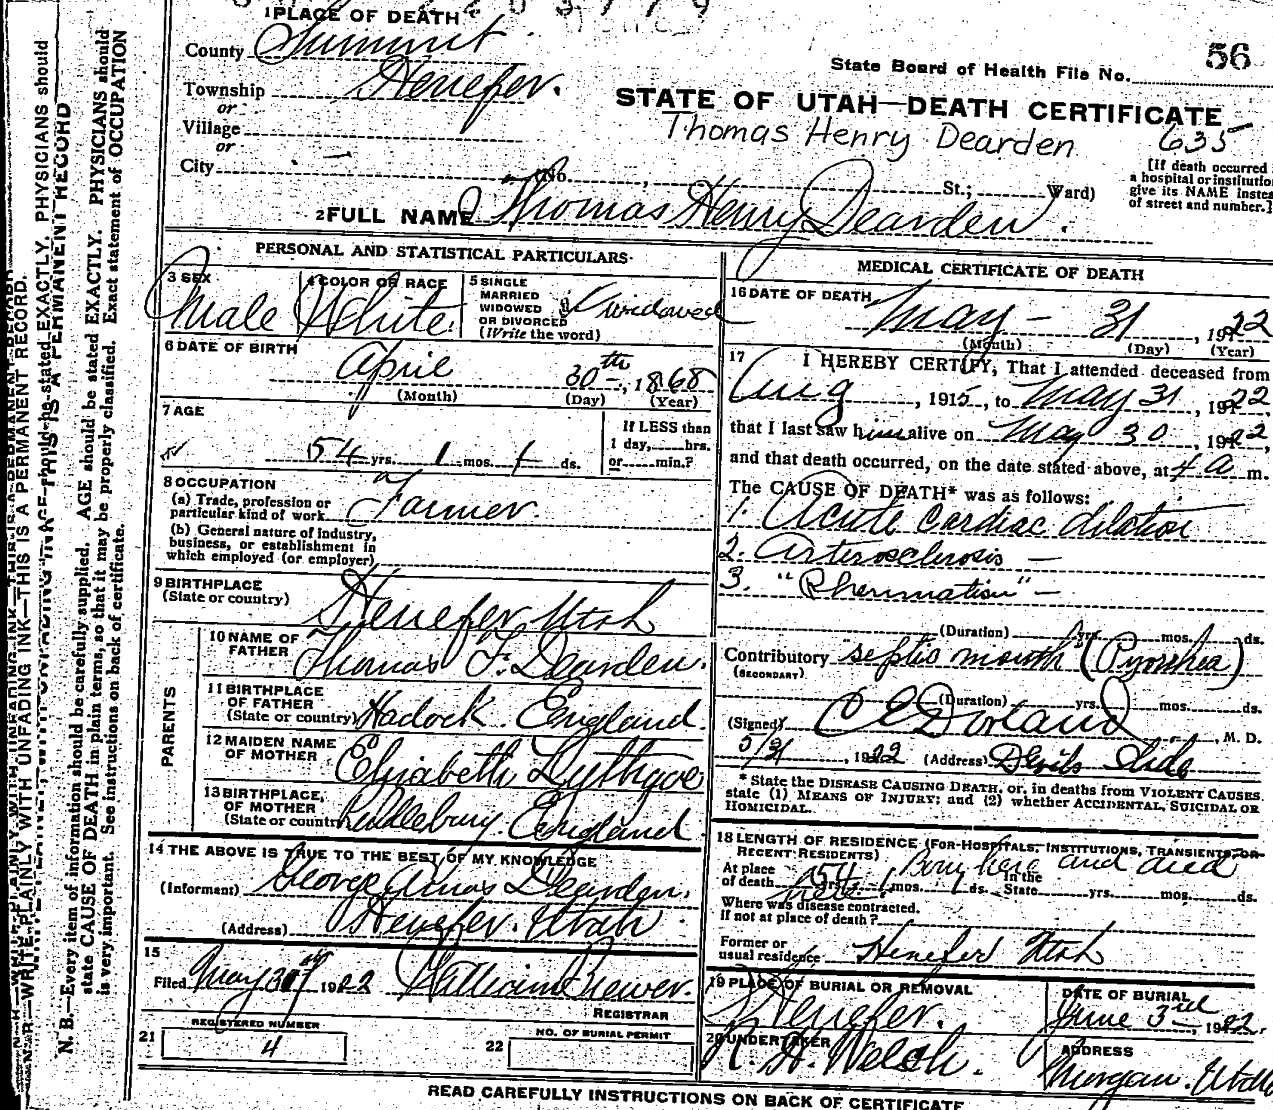 1 PLACE OF DEATH
County Summit
Township Henefer.
or
Village
or
City
State Board of Health File No. 56
STATE OF UTAH—DEATH CERTIFICATE
Thomas Henry Dearden 635
(No. , St.; Ward)
[If death occurred
a hospital or institution
give its NAME instead
of street and number.]
2 FULL NAME Thomas Henry Dearden.
PERSONAL AND STATISTICAL PARTICULARS
3 SEX
Male
4 COLOR OR RACE
White.
5 SINGLE
MARRIED
WIDOWED
OR DIVORCED
(Write the word)
widowed
6 DATE OF BIRTH
April 30th, 1868
(Month) (Day) (Year)
7 AGE
54 yrs. 1 mos. 1 ds.
If LESS than
1 day, hrs.
or min.?
8 OCCUPATION
(a) Trade, profession or
particular kind of work Farmer.
(b) General nature of industry,
business, or establishment in
which employed (or employer)
9 BIRTHPLACE
(State or country)
Henefer Utah
PARENTS
10 NAME OF
FATHER Thomas F. Dearden.
11 BIRTHPLACE
OF FATHER
(State or country) Hadock. England
12 MAIDEN NAME
OF MOTHER Elizabeth Lythgoe
13 BIRTHPLACE
OF MOTHER
(State or country) England.
14 THE ABOVE IS TRUE TO THE BEST OF MY KNOWLEDGE
(Informant) George Amos Dearden.
(Address) Henefer. Utah
15
Filed May 31st 1922 William Brewer.
REGISTRAR
21 REGISTERED NUMBER
4
22 NO. OF BURIAL PERMIT
MEDICAL CERTIFICATE OF DEATH
16 DATE OF DEATH
May - 31, 1922
(Month) (Day) (Year)
17 I HEREBY CERTIFY, That I attended deceased from
Aug, 1915, to May 31, 1922,
that I last saw him alive on May 30, 1922,
and that death occurred, on the date stated above, at 4 a m.
The CAUSE OF DEATH* was as follows:
1. Acute cardiac dilation
2. Arterosclerosis —
3. "Rheumatism" —
(Duration) yrs. mos. ds.
Contributory septic mouth (Pyorrhea)
(SECONDARY)
(Duration) yrs. mos. ds.
(Signed) Dorland, M. D.
5/31, 1922 (Address) Devils Slide
* State the DISEASE CAUSING DEATH, or, in deaths from VIOLENT CAUSES,
state (1) MEANS OF INJURY; and (2) whether ACCIDENTAL, SUICIDAL OR
HOMICIDAL.
18 LENGTH OF RESIDENCE (FOR HOSPITALS, INSTITUTIONS, TRANSIENTS, OR
RECENT RESIDENTS) Born here and died
At place
of death 54 yrs. 1 mos. 1 ds. In the
State yrs. mos. ds.
Where was disease contracted,
if not at place of death?
Former or
usual residence Henefer Utah
19 PLACE OF BURIAL OR REMOVAL
Henefer.
DATE OF BURIAL
June 3rd, 1922.
20 UNDERTAKER
Welch.
ADDRESS
Morgan. Utah
READ CAREFULLY INSTRUCTIONS ON BACK OF CERTIFICATE
WRITE PLAINLY WITH UNFADING INK—THIS IS A PERMANENT RECORD.
N. B.—Every item of information should be carefully supplied. AGE should be stated EXACTLY. PHYSICIANS should
state CAUSE OF DEATH in plain terms, so that it may be properly classified. Exact statement of OCCUPATION
is very important. See instructions on back of certificate.